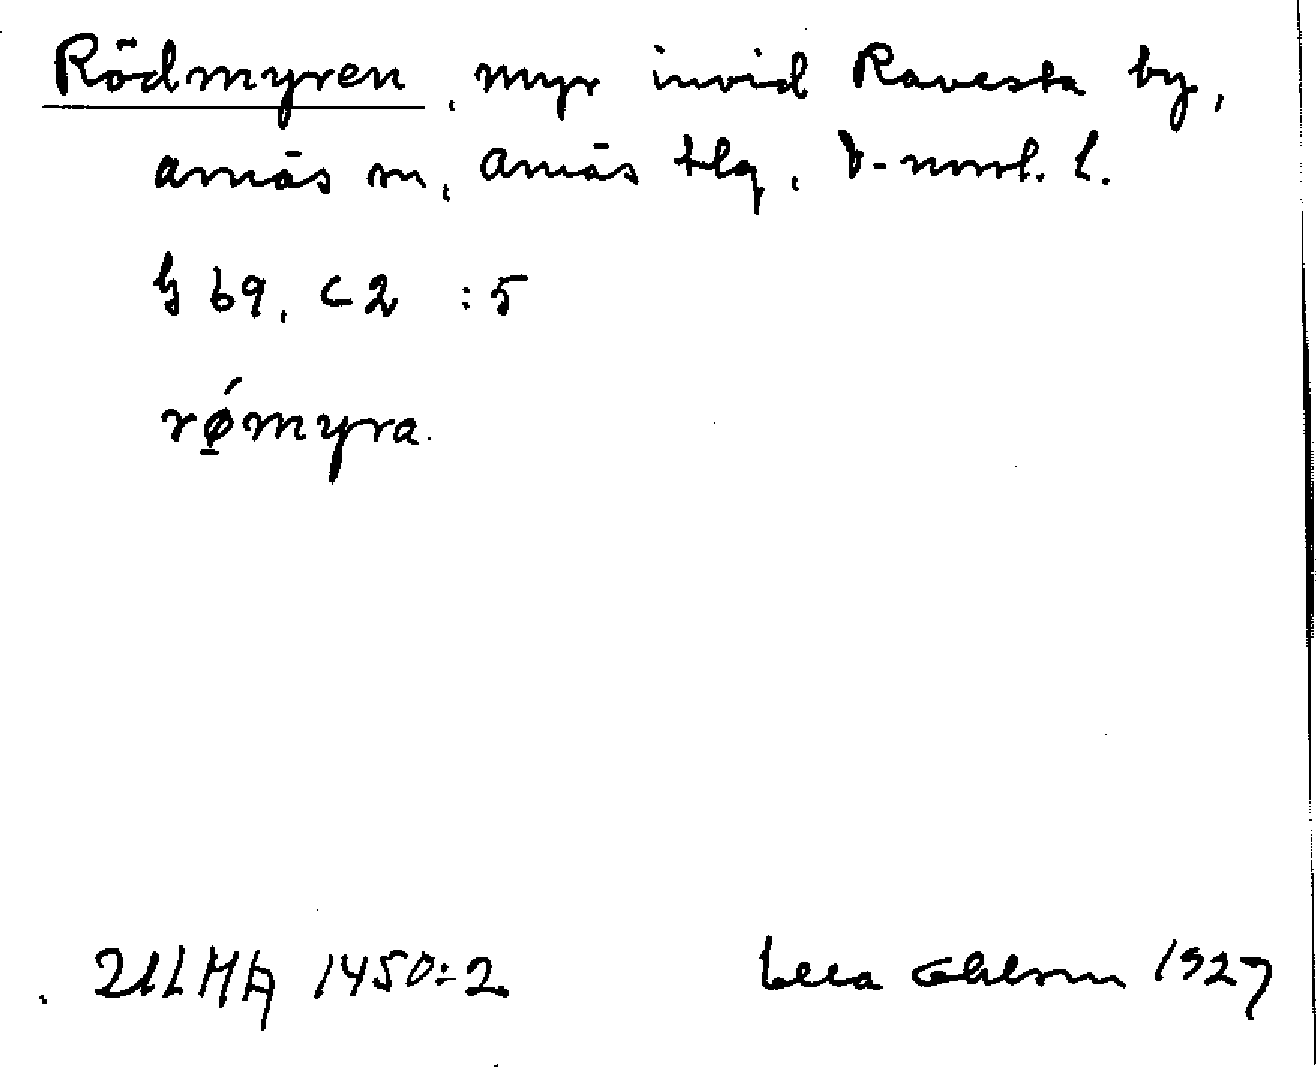 Rödmyren, myr invid Ravesta by,
arnäs sn, arnäs tlg, V-norrl. l.
G 69, C2 :5
rǿmyra.
ULMA 1450:2 1927